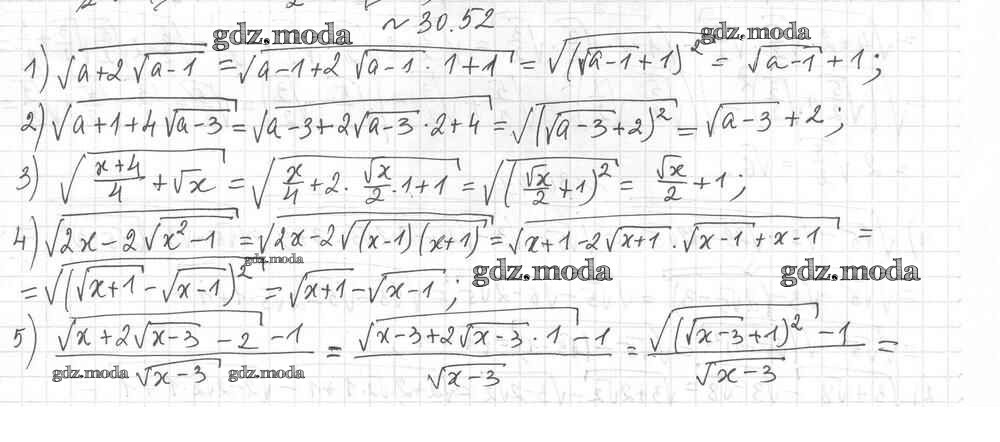 ~ 30.52
gdz.moda gdz.moda
1) √(a+2√(a-1)) = √(a-1+2√(a-1)·1+1) = √((√(a-1)+1)²) = √(a-1)+1;
2) √(a+1+4√(a-3)) = √(a-3+2√(a-3)·2+4) = √((√(a-3)+2)²) = √(a-3)+2;
3) √((x+4)/4+√x) = √(x/4+2·√x/2·1+1) = √((√x/2+1)²) = √x/2+1;
4) √(2x-2√(x²-1)) = √(2x-2√((x-1)(x+1))) = √(x+1-2√(x+1)·√(x-1)+x-1) =
gdz.moda
= √((√(x+1)-√(x-1))²) = √(x+1)-√(x-1);
gdz.moda gdz.moda
5) (√(x+2√(x-3)-2)-1)/√(x-3) = (√(x-3+2√(x-3)·1)-1)/√(x-3) = (√((√(x-3)+1)²)-1)/√(x-3) =
gdz.moda gdz.moda